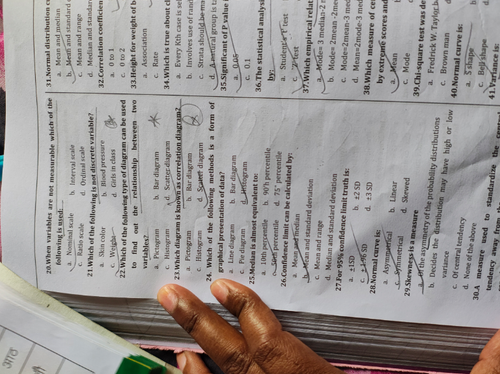 20.When variables are not measurable which of the
following is used:
a. Nominal scale b. Interval scale
c. Ratio scale d. Ordinal scale
21.Which of the following is not discrete variable?
a. Skin color b. Blood pressure
c. Weight d. Girls in class
22.Which of the following type of diagram can be used
to find out the relationship between two
variables?
a. Pictogram b. Bar diagram
c. Histogram d. Scatter diagram
23.Which diagram is known as correlation diagram?
a. Pictogram b. Bar diagram
c. Histogram d. Scatter diagram
24. Which of the following methods is a form of
graphical presentation of data?
a. Line diagram b. Bar diagram
c. Pie diagram d. Histogram
25.Median is almost equivalent to:
a. 10th percentile b. 90th percentile
c. 50th percentile d. 75th percentile
26.Confidence limit can be calculated by:
a. Mean and median
b. Mean and standard deviation
c. Mean and range
d. Median and standard deviation
27.For 95% confidence limit truth is:
a. ±1SD b. ±2 SD
d. ±3 SD
28.Normal curve is:
a. Asymmetrical b. Linear
c. Symmetrical d. Skewed
29.Skewness is a measure of
a. the asymmetry of the probability distributions
b. Decides the distribution may have high or low
variance
c. Of central tendency
d. None of the above
30.A measure used to standardize the
tendency away from
31.Normal distribution
a. Mean and median
b. Mean and standard
c. Mean and range
d. Median and standard
32.Correlation coefficient
a. 0 to 1
c. 0 to 2
33.Height for weight
a. Association
c. Ratio
34.Which is true about
a. Every Kth case is
b. Involves use of
c. Strata should be
d.
35.Significant of F value
a. 0.05
c. 0.1
36.The statistical analysis
by:
a. Student's T test
c. F test
37.Which empirical
a. Mode= 3 median-2
b. Mode= 2mean-
c. Mode=2mean-3
d. Mean=2mode-3
38.Which measure of
by extreme scores and
a. Mean
c. Mode
39.Chi-square test was
a. Fredrick W.Taylor
c. Brown man
40.Normal curve is:
a. S shape
c. Bell shape
41.Variance is: